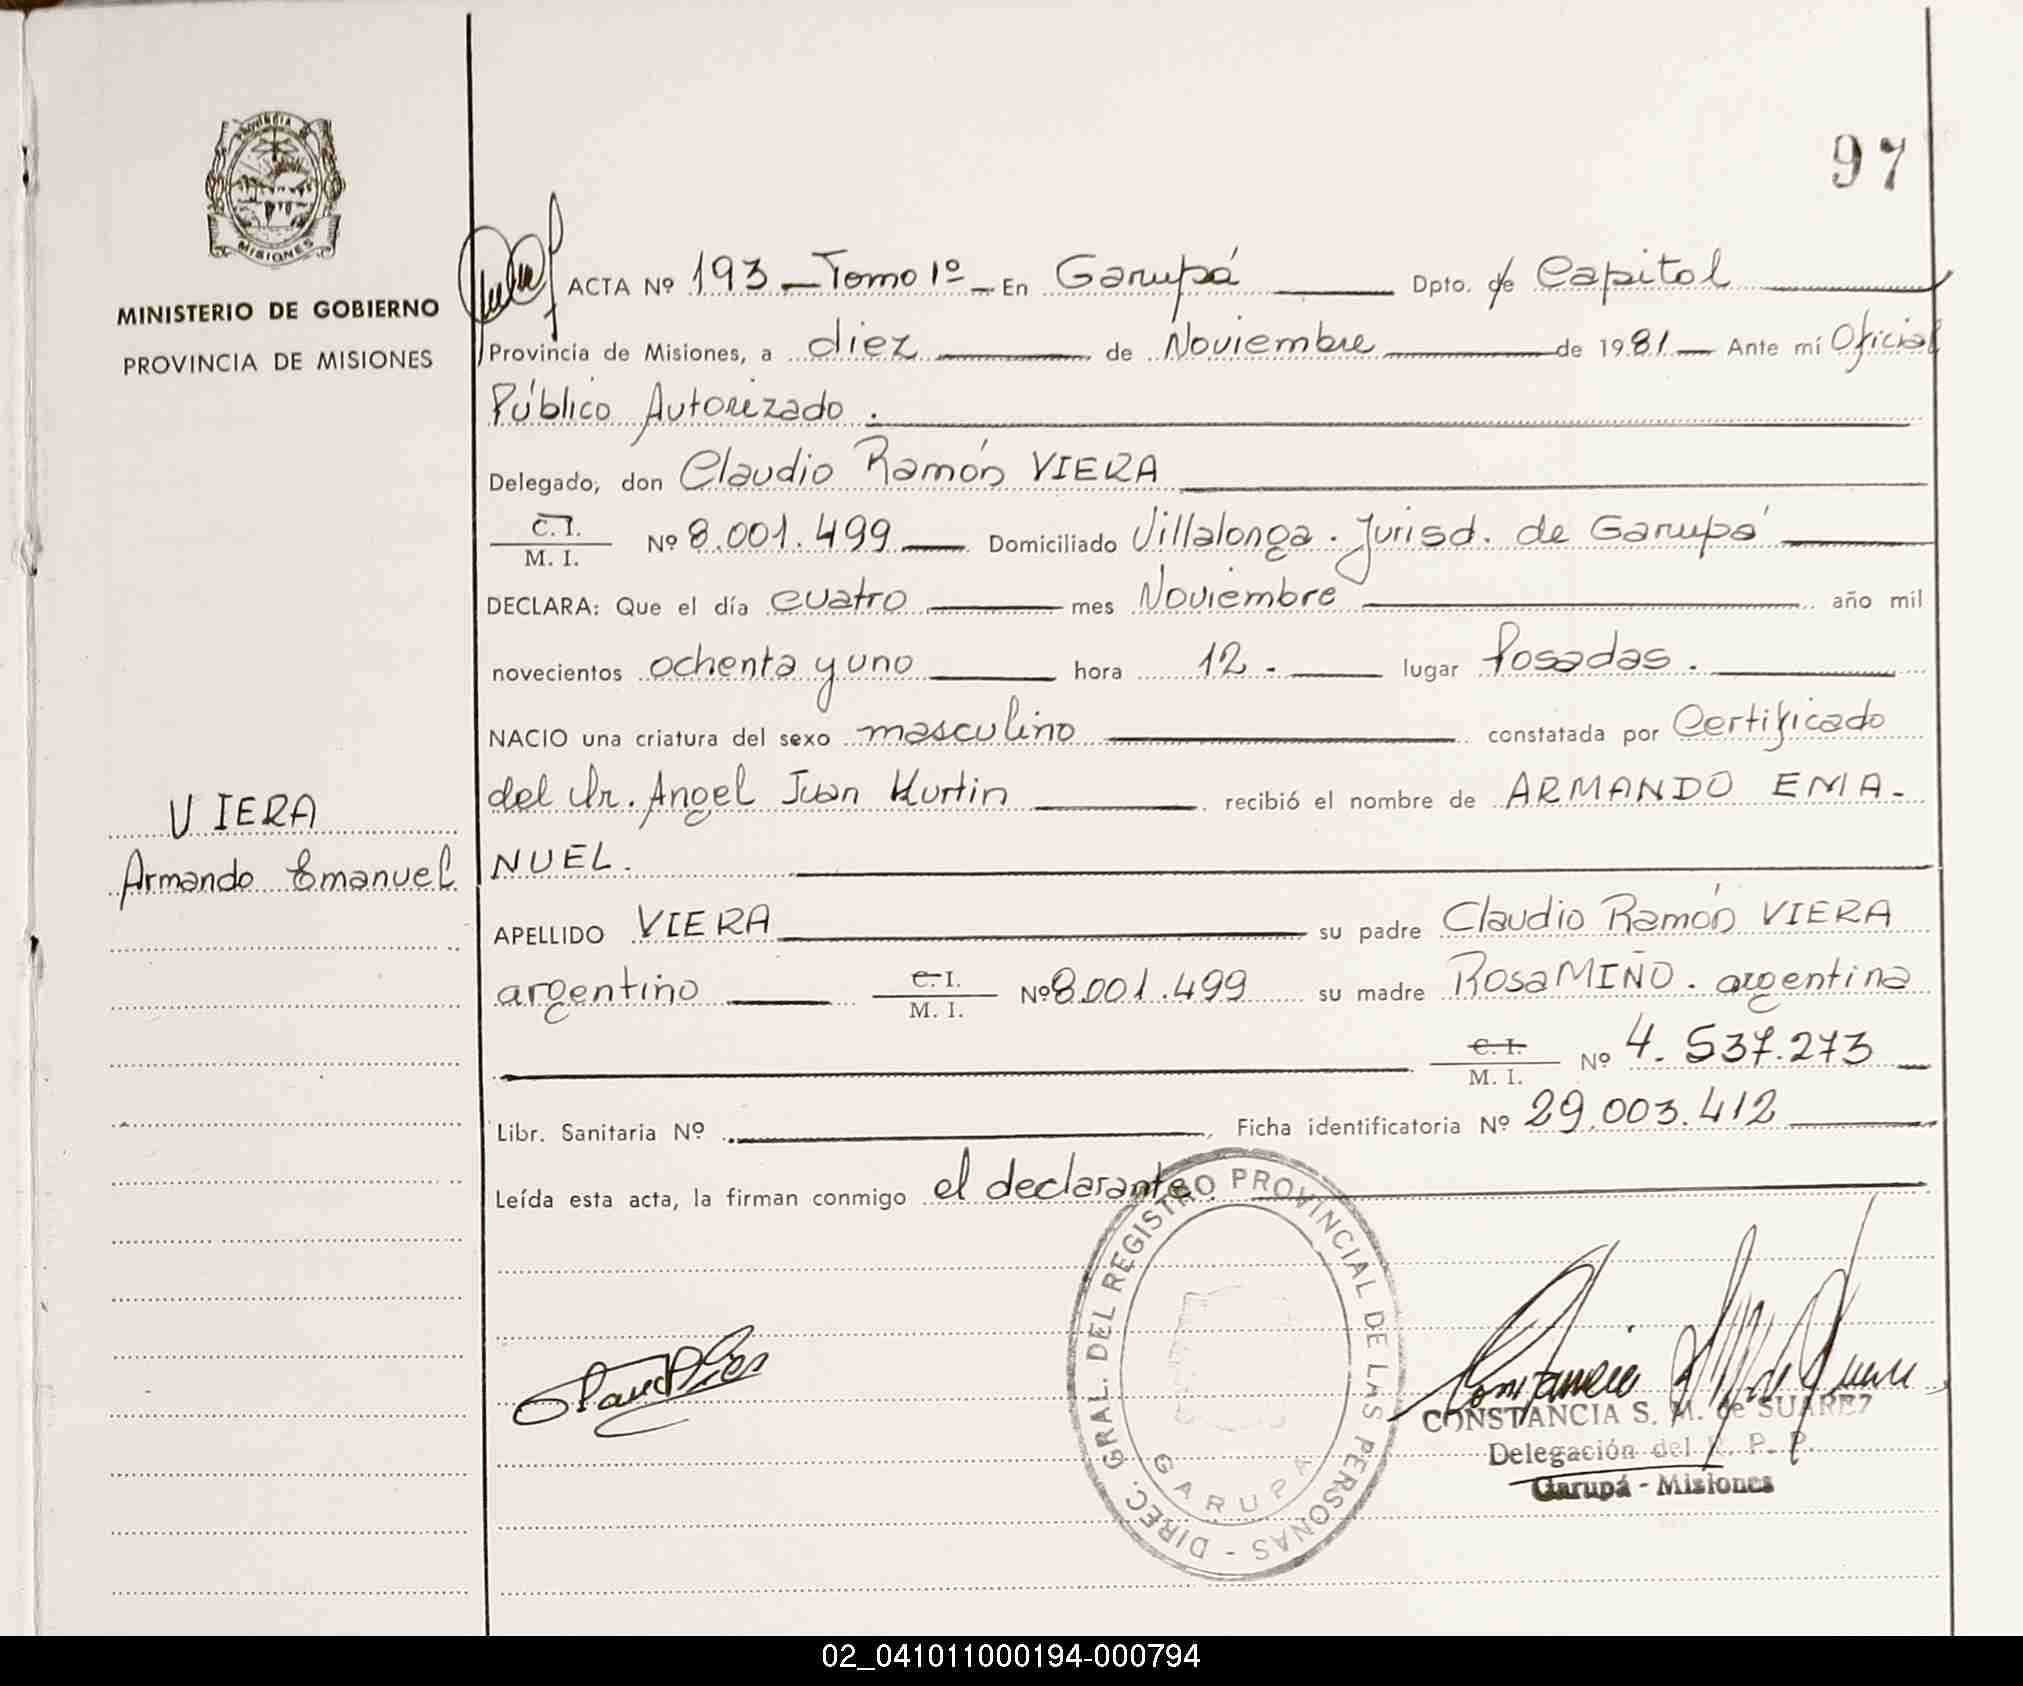 97
Provincia de
MISIONES
MINISTERIO DE GOBIERNO
PROVINCIA DE MISIONES
VIERA
Armando Emanuel
ACTA Nº 193 - Tomo 1º - En Garupá Dpto. de Capital
Provincia de Misiones, a diez de Noviembre de 1981 - Ante mí Oficial
Público Autorizado.
Delegado, don Claudio Ramón VIERA
C.I. M. I. Nº 8.001.499 Domiciliado Villalonga. Jurisd. de Garupá
DECLARA: Que el día cuatro mes Noviembre año mil
novecientos ochenta y uno hora 12.- lugar Posadas.
NACIO una criatura del sexo masculino constatada por Certificado
del Dr. Angel Juan Kurtin recibió el nombre de ARMANDO EMA-
NUEL.
APELLIDO VIERA su padre Claudio Ramón VIERA
argentino C.I. M. I. Nº 8.001.499 su madre Rosa MIÑO. argentina
C. I. M. I. Nº 4.537.273
Libr. Sanitaria Nº Ficha identificatoria Nº 29.003.412
Leída esta acta, la firman conmigo el declarante.
DIREC. GRAL. DEL REGISTRO PROVINCIAL DE LAS PERSONAS -
GARUPA
CONSTANCIA S. M. de SUAREZ
Delegación del R. P. P.
Garupá - Misiones
02_041011000194-000794